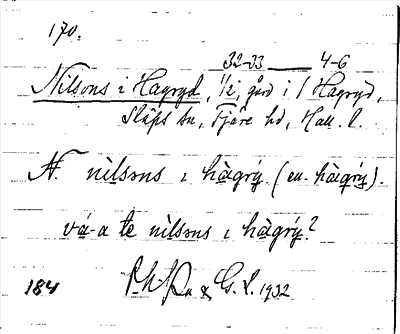 170.
32-33 4-6
Nilsons i Hagryd, 1/2, gård i 1 Hagryd,
Släps sn, Fjäre hd, Hall. l.
N. nìlsɔns ı hàgrý. (en. hàgrý).
vá-a te nìlsɔns ı hàgrý?
& G. L. 1932
184